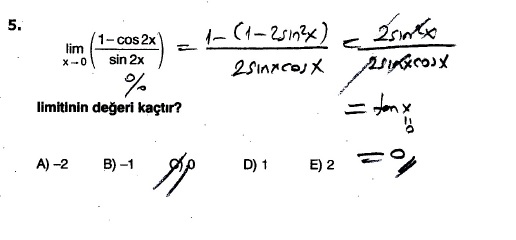 5.
lim x→0 ((1 - cos2x)/(sin 2x)) = (1-(1-2sin²x))/(2sinxcosx) = (2sin²x)/(2sinxcosx)
0/0
= tan x
0
limitinin değeri kaçtır?
= 0
A) –2 B) –1 C) 0 D) 1 E) 2